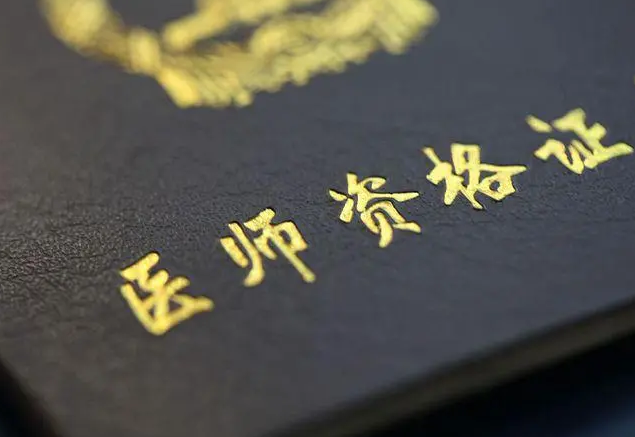 医师资格证